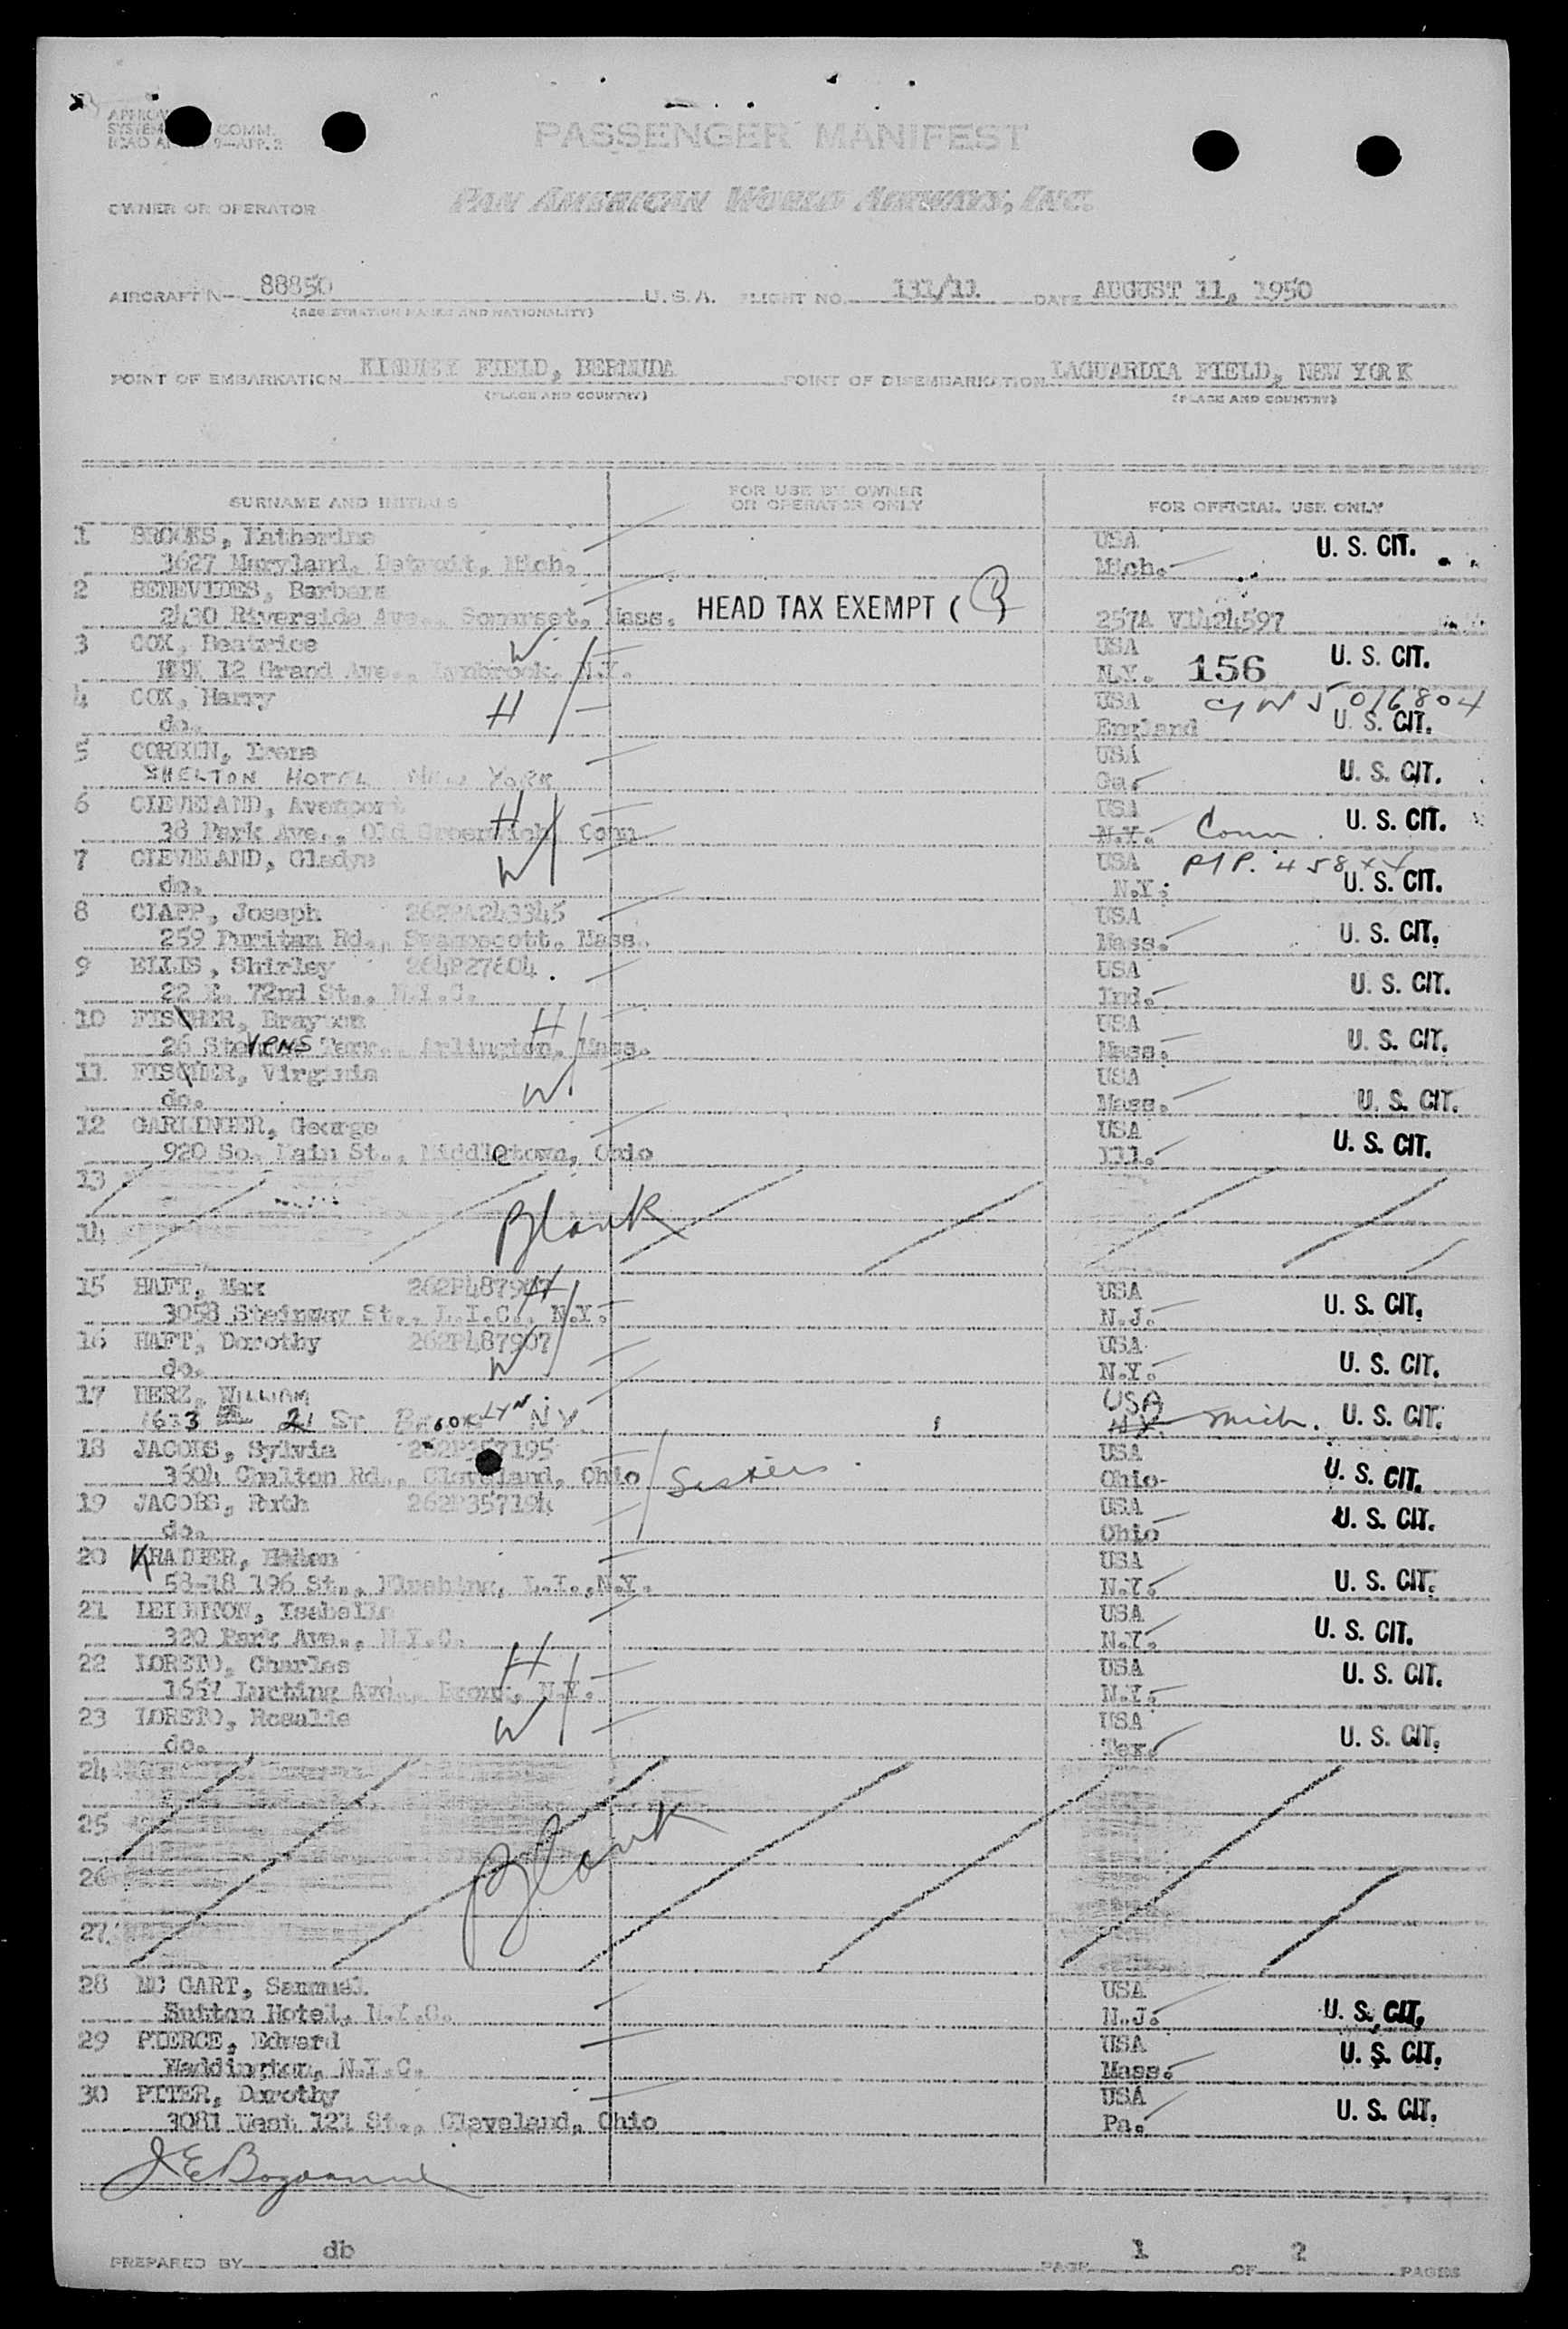 PASSENGER MANIFEST
OWNER OR OPERATOR PAN AMERICAN WORLD AIRWAYS, INC.
AIRCRAFT N- 88850 U.S.A. FLIGHT NO. 131/11 DATE AUGUST 11, 1950
(REGISTRATION MARKS AND NATIONALITY)
POINT OF EMBARKATION KINDLEY FIELD, BERMUDA POINT OF DISEMBARKATION LAGUARDIA FIELD, NEW YORK
(PLACE AND COUNTRY) (PLACE AND COUNTRY)
SURNAME AND INITIALS FOR USE BY OWNER OR OPERATOR ONLY FOR OFFICIAL USE ONLY
1 BROOKS, Katherine USA U. S. CIT.
3627 Maryland, Detroit, Mich. Mich.
2 BENEVIDES, Barbara
2430 Riverside Ave., Somerset, Mass. HEAD TAX EXEMPT ( 257A V1424597
3 COX, Beatrice W USA U. S. CIT.
12 Grand Ave., Lynbrook, N.Y. N.Y. 156
4 COX, Harry H USA
do. England U. S. CIT.
5 CORBIN, USA
SHELTON HOTEL NEW YORK Ga. U. S. CIT.
6 CLEVELAND, H USA U. S. CIT.
38 Park Ave., Old Greenwich, Conn. N.Y. Conn.
7 CLEVELAND, Gladys W USA
do. N.Y. U. S. CIT.
8 CLAPP, Joseph 262PA243345 USA
259 Puritan Rd., Swampscott, Mass. Mass. U. S. CIT.
9 ELLIS, Shirley 264P27604 USA
22 E. 72nd St., N.Y.C. Ind. U. S. CIT.
10 FISCHER, Brayton H USA
26 Stevens Terr., Arlington, Mass. Mass. U. S. CIT.
11 FISCHER, Virginia W USA
do. Mass. U. S. CIT.
12 GARLINGER, George USA
920 So. Main St., Middletown, Ohio Ill. U. S. CIT.
13
14 Blank
15 HAFT, Max 262P487907 H USA
3058 Steinway St., L.I.C., N.Y. N.J. U. S. CIT.
16 HAFT, Dorothy 262P487907 W USA
do. N.Y. U. S. CIT.
17 HERZ, WILLIAM USA
1633 21 ST BROOKLYN N.Y. N.Y. Mich. U. S. CIT.
18 JACOBS, Sylvia 262P357195 USA
3604 Chalton Rd., Cleveland, Ohio Sisters Ohio U. S. CIT.
19 JACOBS, Ruth 262P357194 USA
do. Ohio U. S. CIT.
20 USA
58-18 196 St., Flushing, L.I., N.Y. N.Y. U. S. CIT.
21 LEIGHTON, Isabelle USA
320 Park Ave., N.Y.C. N.Y. U. S. CIT.
22 LORETO, Charles H USA U. S. CIT.
1557 Lurting Ave., Bronx, N.Y. N.Y.
23 LORETO, Rosalie W USA
do. Tex. U. S. CIT.
24
25
26 Blank
27
28 MC GART, Sammuel USA
Sutton Hotel, N.Y.C. N.J. U. S. CIT.
29 PIERCE, Edward USA
Waddington, N.Y.C. Mass. U. S. CIT.
30 PITER, Dorothy USA
3081 West 121 St., Cleveland, Ohio Pa. U. S. CIT.
PREPARED BY db PAGE 1 OF 2 PAGES